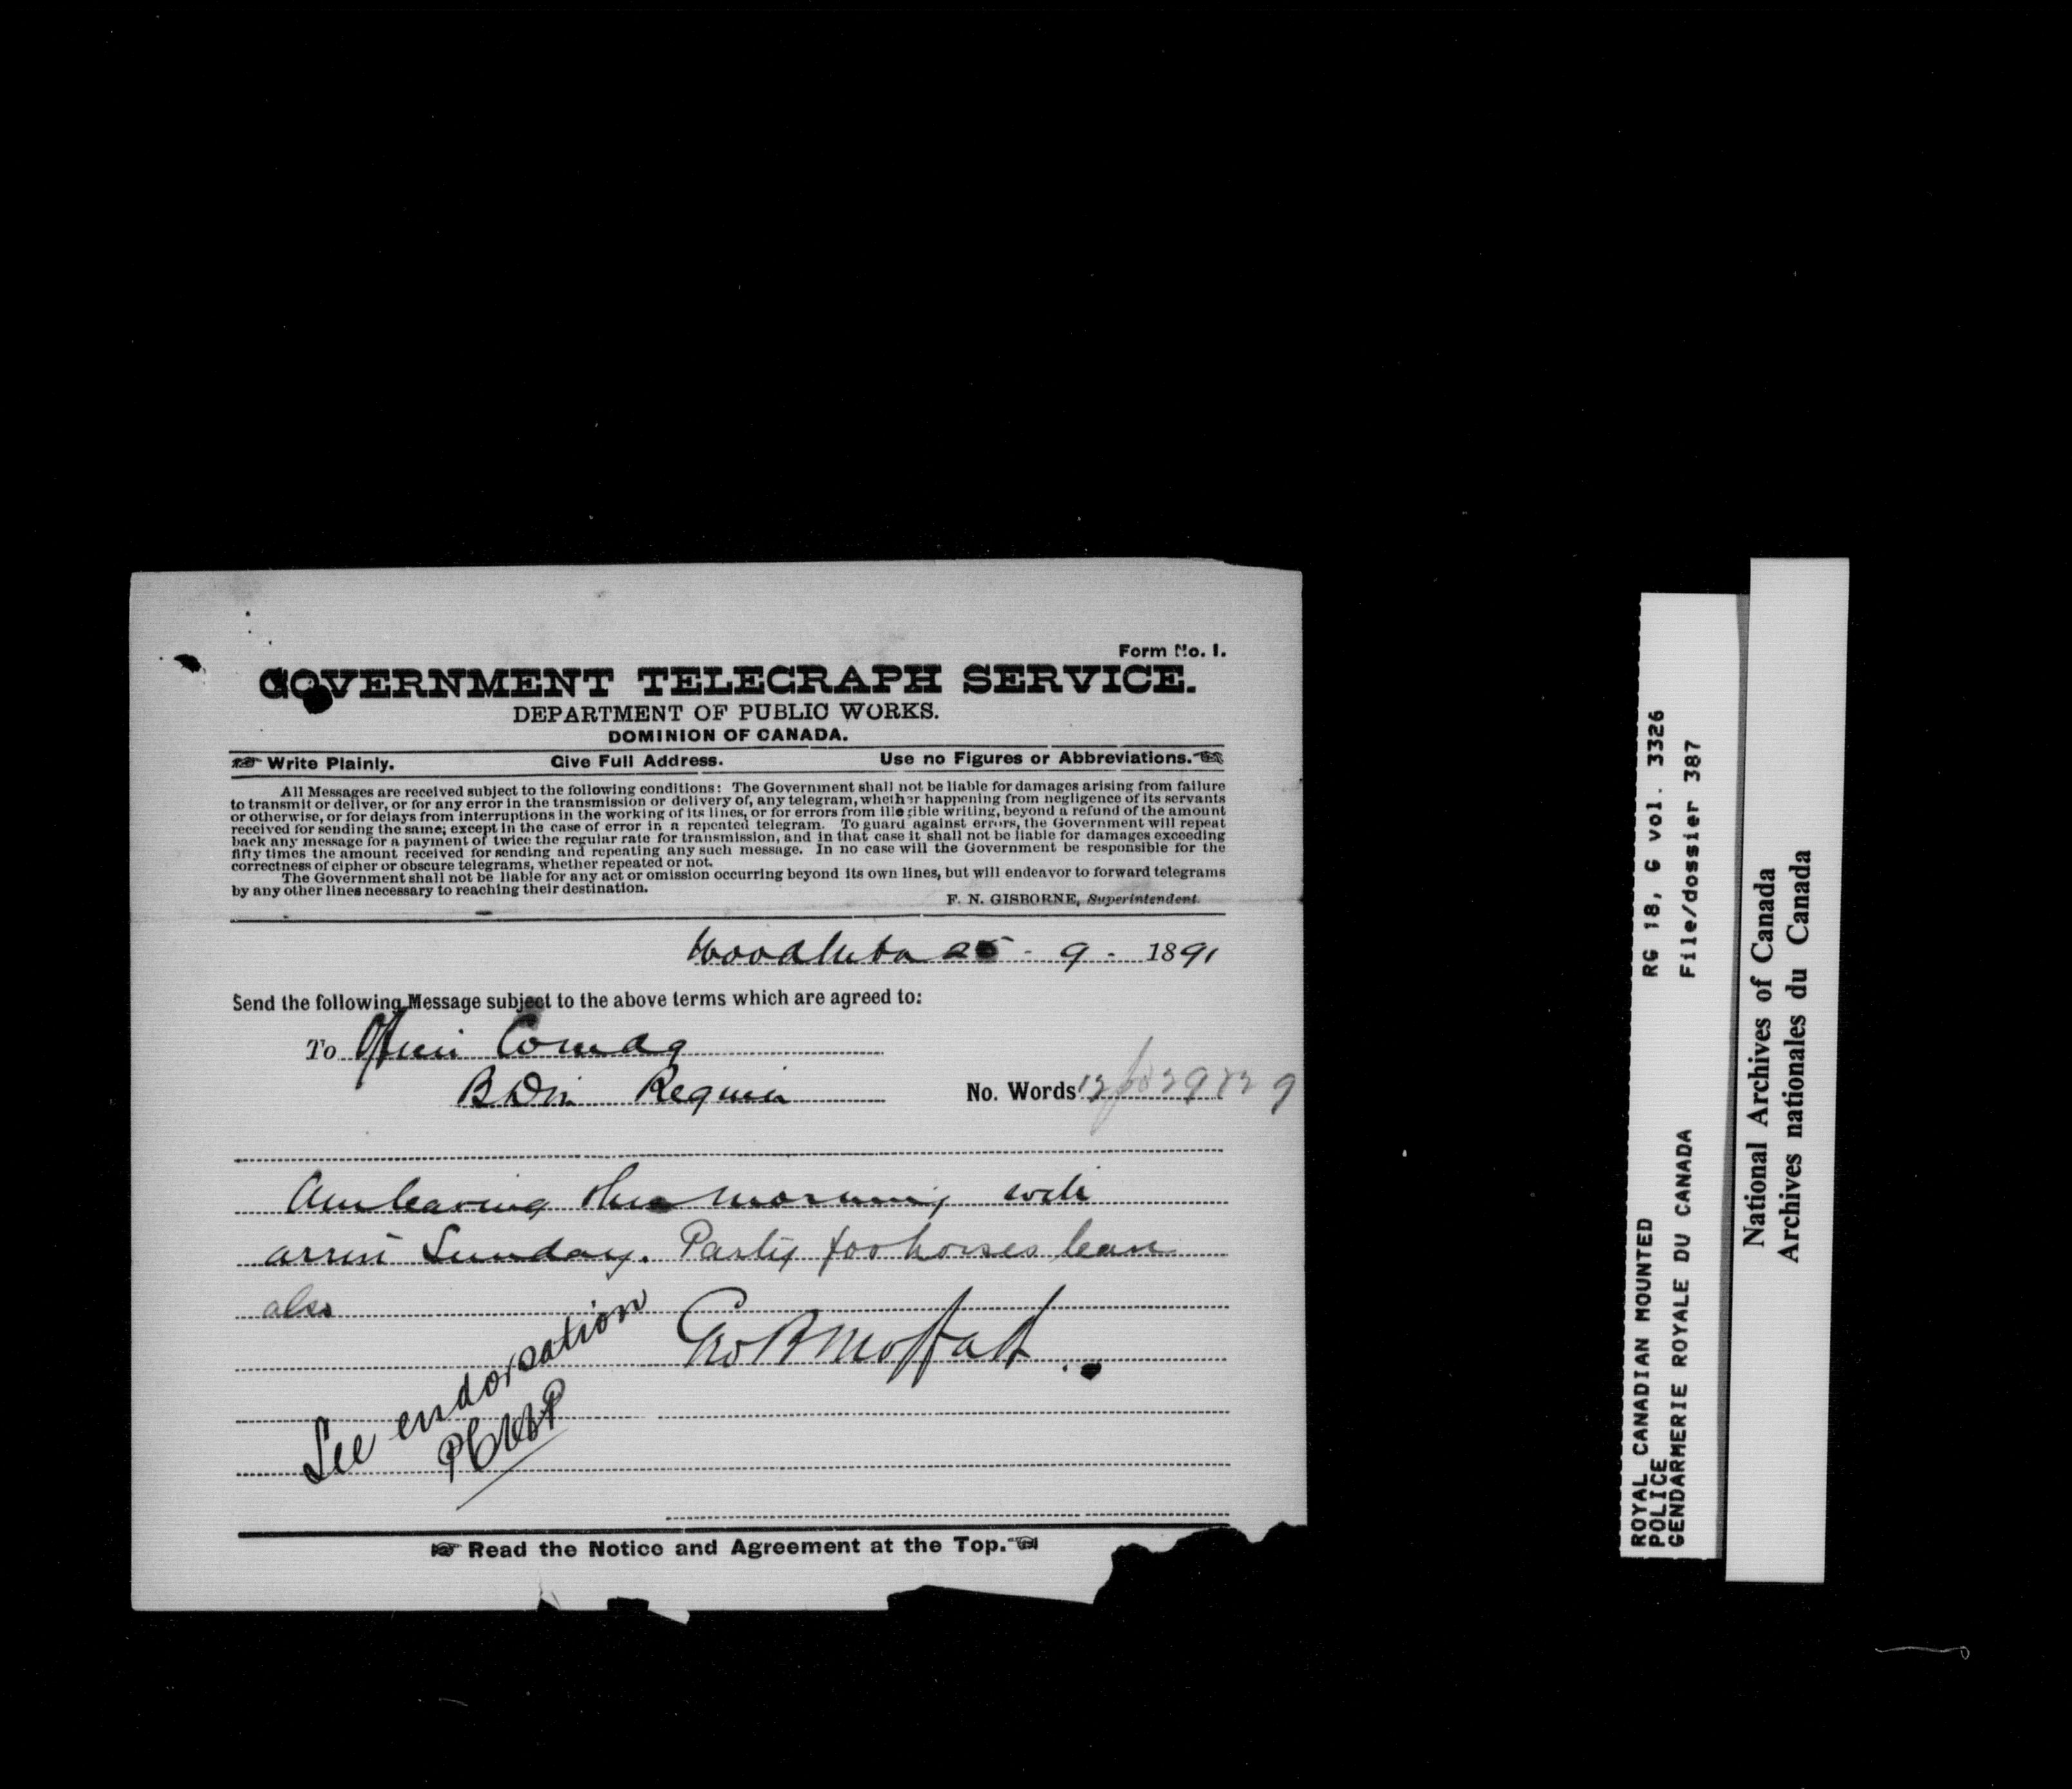 Form No. 1.
GOVERNMENT TELEGRAPH SERVICE.
DEPARTMENT OF PUBLIC WORKS.
DOMINION OF CANADA.
Write Plainly. Give Full Address. Use no Figures or Abbreviations.
All Messages are received subject to the following conditions: The Government shall not be liable for damages arising from failure
to transmit or deliver, or for any error in the transmission or delivery of, any telegram, whether happening from negligence of its servants
or otherwise, or for delays from interruptions in the working of its lines, or for errors from illegible writing, beyond a refund of the amount
received for sending the same; except in the case of error in a repeated telegram. To guard against errors, the Government will repeat
back any message for a payment of twice the regular rate for transmission, and in that case it shall not be liable for damages exceeding
fifty times the amount received for sending and repeating any such message. In no case will the Government be responsible for the
correctness of cipher or obscure telegrams, whether repeated or not.
The Government shall not be liable for any act or omission occurring beyond its own lines, but will endeavor to forward telegrams
by any other lines necessary to reaching their destination.
F. N. GISBORNE, Superintendent.
25 - 9 - 1891
Send the following Message subject to the above terms which are agreed to:
To Officer Comdg
B Divn Regina
No. Words
Am leaving this morning will
arrive Sunday. Party four horses leave
also
Geo B Moffatt
See endorsation
Read the Notice and Agreement at the Top.
ROYAL CANADIAN MOUNTED RG 18, G vol. 3326
POLICE
GENDARMERIE ROYALE DU CANADA File/dossier 387
National Archives of Canada
Archives nationales du Canada